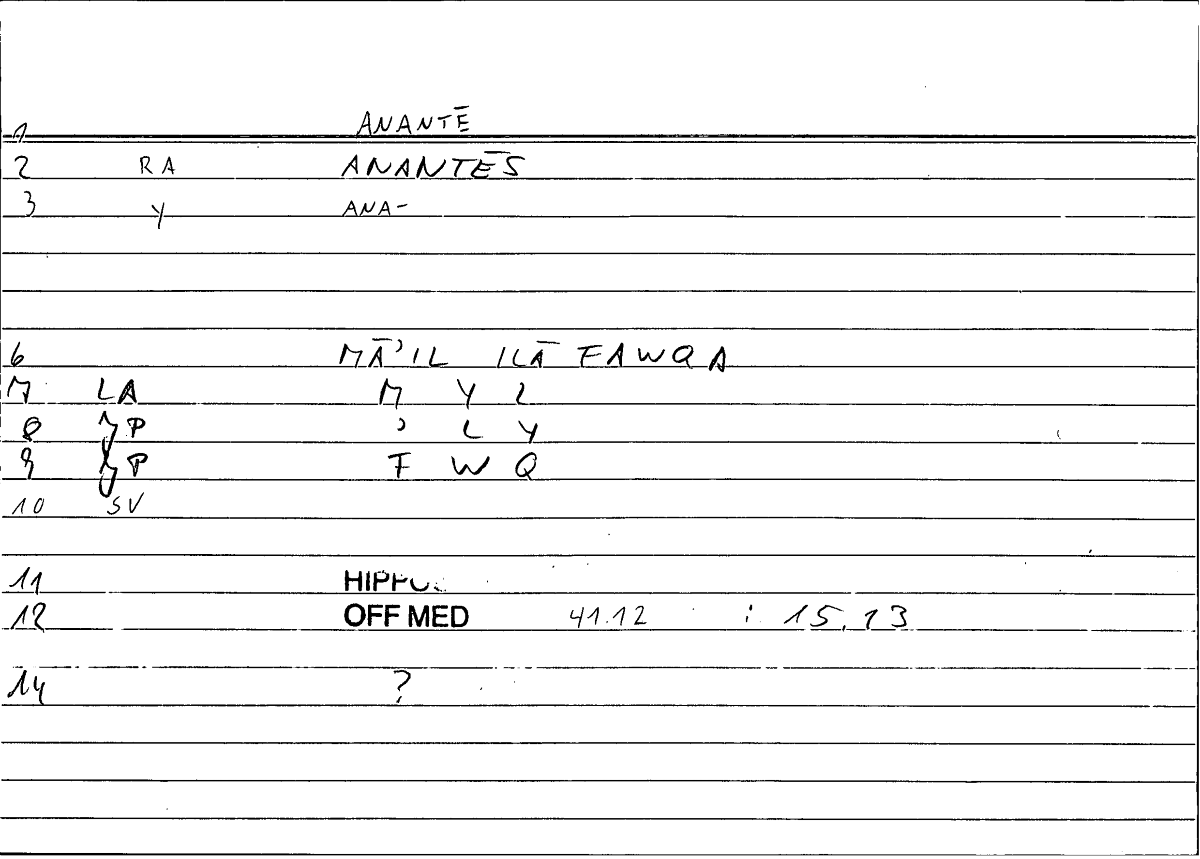 1 ANANTĒ
2 RA ANANTĒS
3 Y ANA-
6 MĀʾIL ILĀ FAWQA
7 LA M Y L
8 P ʾ L Y
9 P F W Q
10 SV
11
12 OFF MED 41.12 : 15,13
14 ?